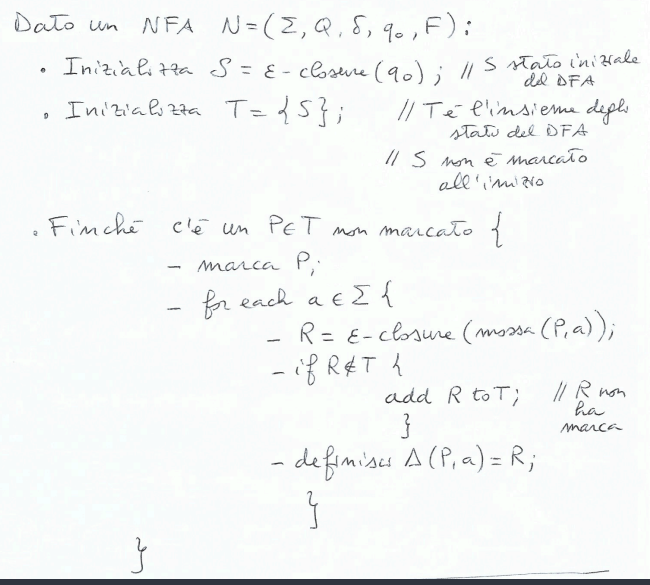 Dato un NFA N=(Σ, Q, δ, q₀, F):
• Inizializza S = ε-closure(q₀); // S stato iniziale
del DFA
• Inizializza T = {S}; // T è l'insieme degli
stati del DFA
// S non è marcato
all'inizio
• Finchè c'è un P∈T non marcato {
– marca P;
– for each a ∈ Σ {
– R = ε-closure(mossa(P,a));
– if R∉T {
add R to T; // R non
ha
marca
}
– definisci Δ(P,a)=R;
}
}